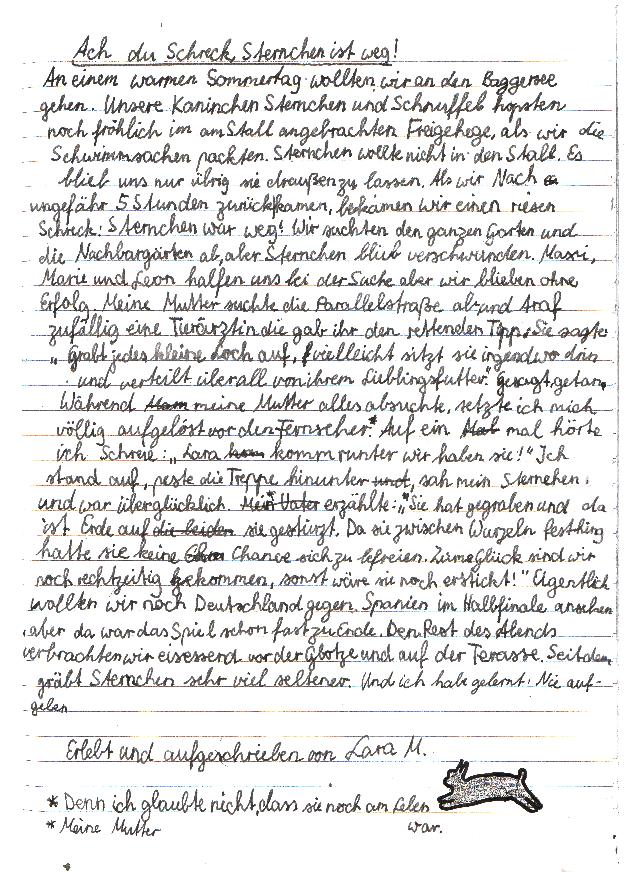 Ach du Schreck, Sternchen ist weg!
An einem warmen Sommertag wollten wir an den Baggersee
gehen. Unsere Kaninchen Sternchen und Schnuffel hopsten
noch fröhlich im am Stall angebrachten Freigehege, als wir die
Schwimmsachen packten. Sternchen wollte nicht in den Stall. Es
blieb uns nur übrig sie draußen zu lassen. Als wir Nach
ungefähr 5 Stunden zurückkamen, bekamen wir einen riesen
Schreck: Sternchen war weg! Wir suchten den ganzen Garten und
die Nachbargärten ab, aber Sternchen blieb verschwunden. Maxi,
Marie und Leon halfen uns bei der Suche aber wir blieben ohne
Erfolg. Meine Mutter suchte die Parallelstraße ab und traf
zufällig eine Tierärztin die gab ihr den rettenden Tipp. Sie sagte
„ grabt jedes kleine Loch auf, vielleicht sitzt sie irgendwo drin
und verteilt überall von ihrem Lieblingsfutter." gesagt, getan,
Während meine Mutter alles absuchte, setzte ich mich
völlig aufgelöst vor den Fernseher.* Auf ein mal hörte
ich Schreie: „Lara komm runter wir haben sie!" Ich
stand auf, peste die Treppe hinunter, sah mein Sternchen
und war überglücklich. Mein Vater* erzählte: „Sie hat gegraben und da
ist Erde auf die beiden sie gestürzt. Da sie zwischen Wurzeln festhing
hatte sie keine Chance sich zu befreien. Zum Glück sind wir
noch rechtzeitig gekommen, sonst wäre sie noch erstickt!" Eigentlich
wollten wir noch Deutschland gegen Spanien im Halbfinale ansehen
aber da war das Spiel schon fast zu Ende. Den Rest des Abends
verbrachten wir eisessend vor der Glotze und auf der Terasse. Seitdem
gräbt Sternchen sehr viel seltener. Und ich habe gelernt: Nie auf-
geben
Erlebt und aufgeschrieben von Lara M.
* Denn ich glaubte nicht, dass sie noch am Leben
war.
* Meine Mutter